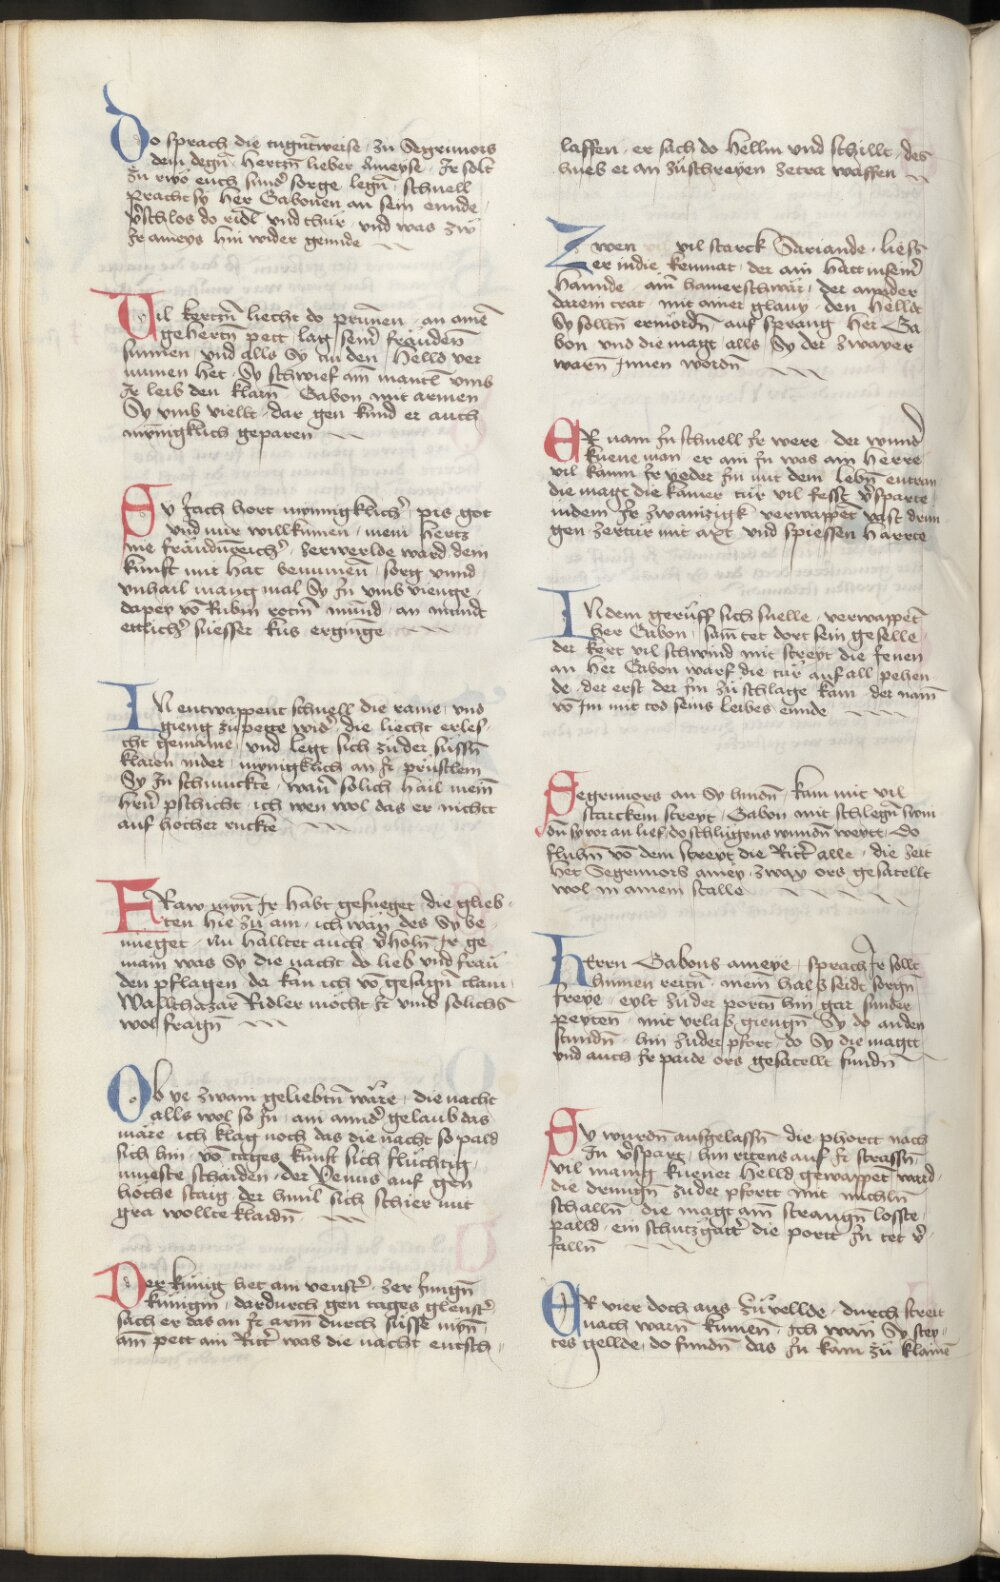 Do sprach die tugntweise · zu Segrimors
dem degn · hertzn lieber Ameyse · Ir solt
zu rwo euch sund' sorge legn · schnell
pracht sy her Gabonen an sein ennde
v'schlos do ridl vnd thür · vnd was zw
Ir ameys hin wider gennde
Vil kertzn liecht do prunnen · an ainē
gehertn pett lag seinr fräuden
sunnen · vnd alls Sy nu den hellds ver
numen het · Sy schwief ain mantl vmb
Ir leib den klarn · Gabon mit armen
Sy vmb vieltt · dar gen kund er auch
mynigklich geparen
Sy sach hort mynnigklich' pis got
vnd mir willkumen · mein hertz
me fräudnreich' · zerwerlde ward dem
kunft mir hat benumen · sorg vnnd
vnhail manig mal Sy In vmb vienge ·
dapey vō Rubin rotm mund · an mund
ettlich' suesser kus erginge
In entwappent schnell die raine · vnd
gieng zu pette wid' · die liecht erles·
cht gemaine · vnd legt sich zuder sussn
klaren nider · mynigklich an Ir prüstlein
Sy In schmuckte · wann solich hail mein
hrn pschicht · ich wen wol das er nichtt
auf hocher ruckte
Fraw mynn Ir habt gefueget die glieb·
ten hie zu ain · ich wän des Sy be·
nueget · Nu halltet auch v'holn Ir ge
main was Sy die nacht do lieb vnd fräu
den pflagen · da kan ich vō gesagn clain
Wallthazar Ridler möcht Ir vmb solichs
wol fragn
Ob ye zwain geliebtn wäre · die nacht
alls wol so In · ain annd' gelaub das
märe ich klag noch das die nacht so pald
sich hin · vō tages kunft sich fluchtig ·
mueste schaiden · der Venus auf gen
hoche staig der himl sich schier mit
gra wollte klaidn
Der künig het ain venst' · zer Jungn
künigin · dardurch gen tages glenst'
sach er das an Ir arm durch süsse mynn ·
ain pett ain Ritt' was die nacht entsch·
laffen · er sach do hellm vnd schillt · des
hueb er an zuschreyen zetra waffen
Zwen vil starck Sariande · liess
er indie kemnat · der ain hatt inseinr
hannde · ain hamerschwär · der annder
darein trat · mit ainer glauy · den helldt
Sy solltn ermordn auf sprang her Ga
bon vnd die magt · alls Sy der zwayer
warn Innen wordn
Er nam In schnell Ir were · der wund
kuene man · er ain In was ain herre
vil kaum Ir yeder Im mit dem lebn entran
die magt die kamer tür vil fesst v'sparte
indem Ir zwainzigk verwappet vast drun
gen zertür mit axt · vnd spiessen harrte
In dem gerüff sich snelle · verwappet
her Gabon · samtet dort sein geselle
der kert vil schwind mit streyt die fenen
an · her Gabon warf die tür auf all pehen
de · der erst der Im zu schlage kam · der nam
vō Im mit tod seins leibes ennde
Segrimors an Sy hindn · kam mit vil
starckem streyt · Gabon mit schlegn swin
dn sy vor an lief · do schlugens wundn weytt · Do
fluhn vō dem streyt die Ritt' alle · die zeit
het Segrimors amey · zway ors gesatellt
wol in ainem stalle
Herrn Gabons ameye · sprach Ir sollt
hinnen reitn · mein hals seidt sorgn
freye · eylt zuder portn hin gar sunder
peyten · mit vrlab giengn Sy do anden
stundn · hin zuder pfort · do Sy die magtt
vnd auch Ir paide ors gesatellt fundn
Sy wurdn ausgelassn die phortt nach
In v'spart · hin ritens auf Ir strassn
vil manig kuener helld gewappet ward ·
die drungn zuder pfortt mit michln
schalln · die magt ain strangn losste ·
palld · ein schutzgatt' die portt In tet v'
falln
Er vier doch aus zu vellde · durch streit
nach warn kumen · Ich wän Sy strey·
tes gellde · do fundn das In kam zu klaine